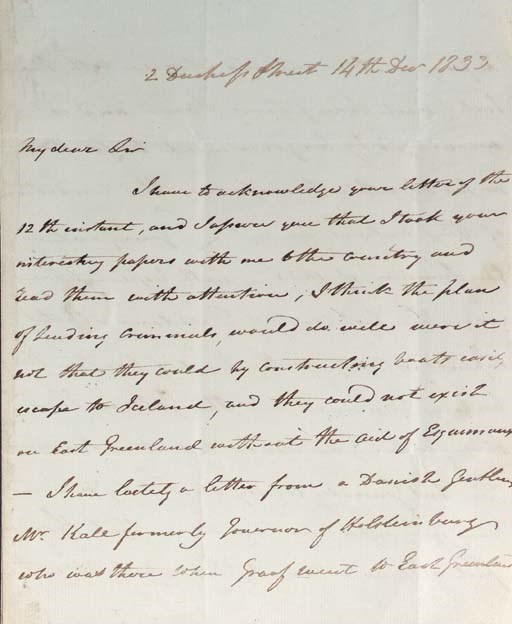 2 Duchess Street 14th Dec 1833
My dear Sir
I have to acknowledge your letter of the
12th instant, and I assure you that I took your
interesting papers with me to the country and
read them with attention, I think the plan
of sending criminals, would do well were it
not that they could by constructing boats easily
escape to Iceland, and they could not exist
on East Greenland without the aid of Esquimaux
— I have lately a letter from a Danish
Mr. formerly Governor of Holsteinburg
who was there when Graaf went to East Greenland